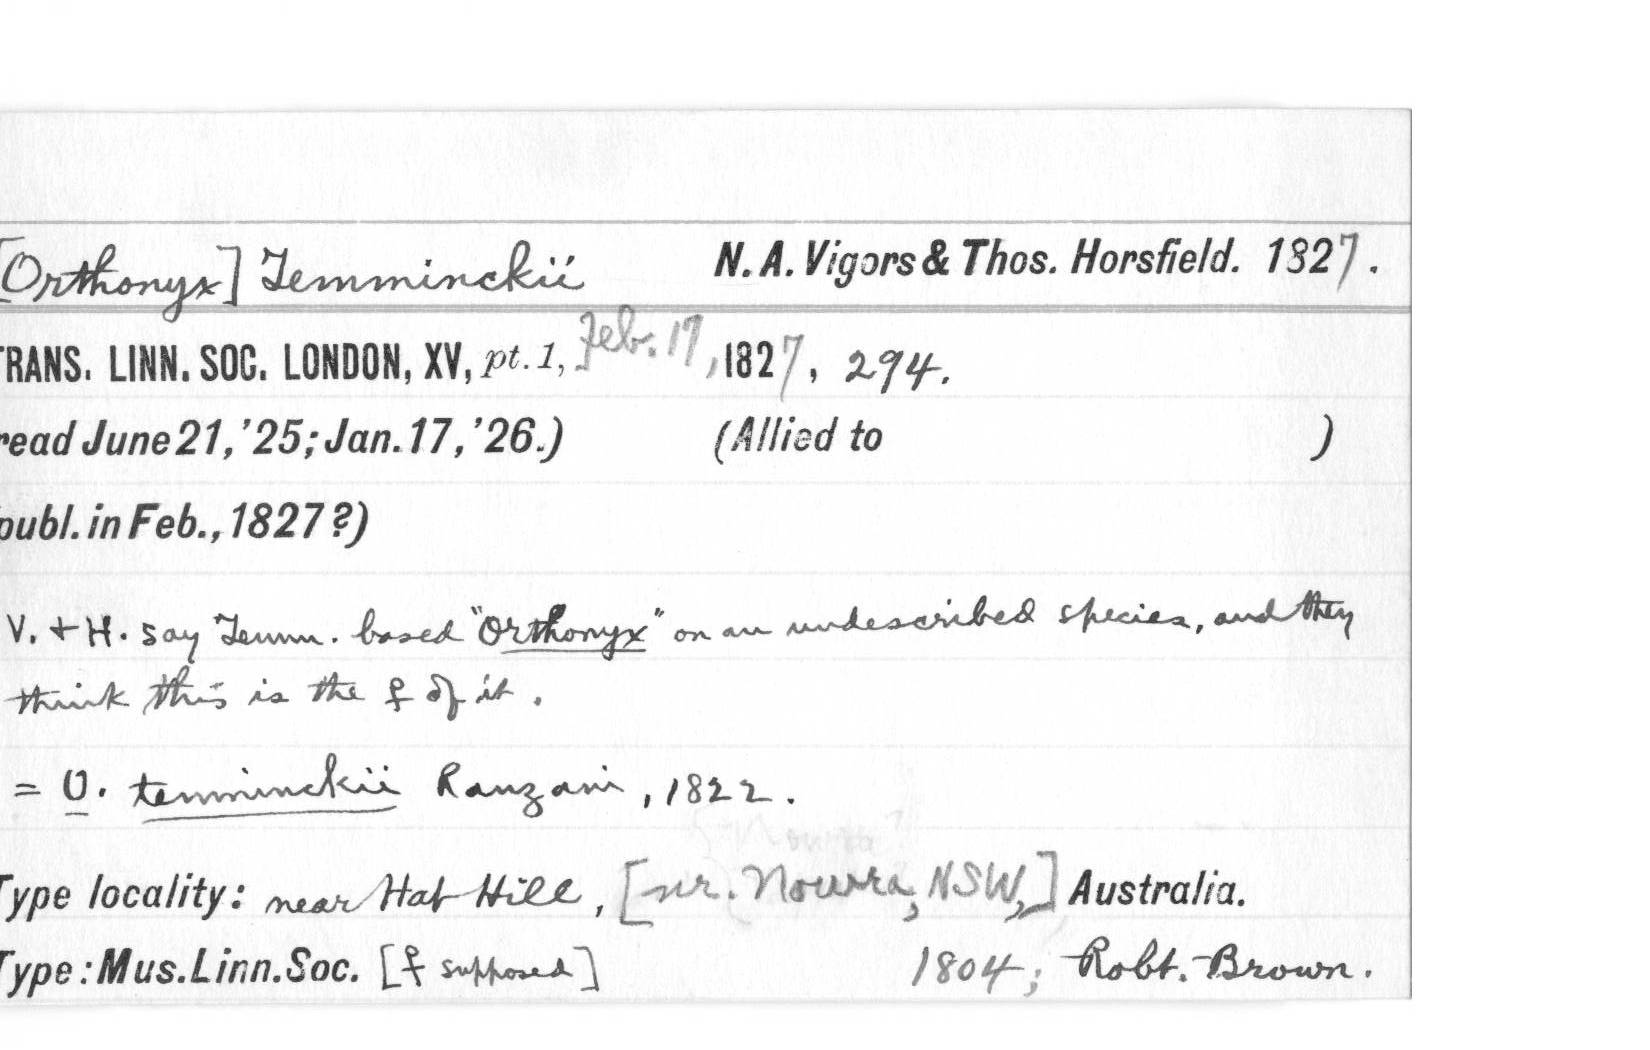 [Orthonyx] Temminckii N. A. Vigors & Thos. Horsfield. 1827.
TRANS. LINN. SOC. LONDON, XV, pt. 1, Feb. 17, 1827, 294.
read June 21, '25; Jan. 17, '26.) (Allied to )
publ. in Feb., 1827?)
V. + H. say Temm. based "Orthonyx" on an undescribed species, and they
think this is the ♀ of it.
= O. temminckii Ranzani, 1822.
Type locality: near Hat Hill, [nr. Nowra, NSW,] Australia.
Type: Mus. Linn. Soc. [♀ supposed] 1804; Robt. Brown.